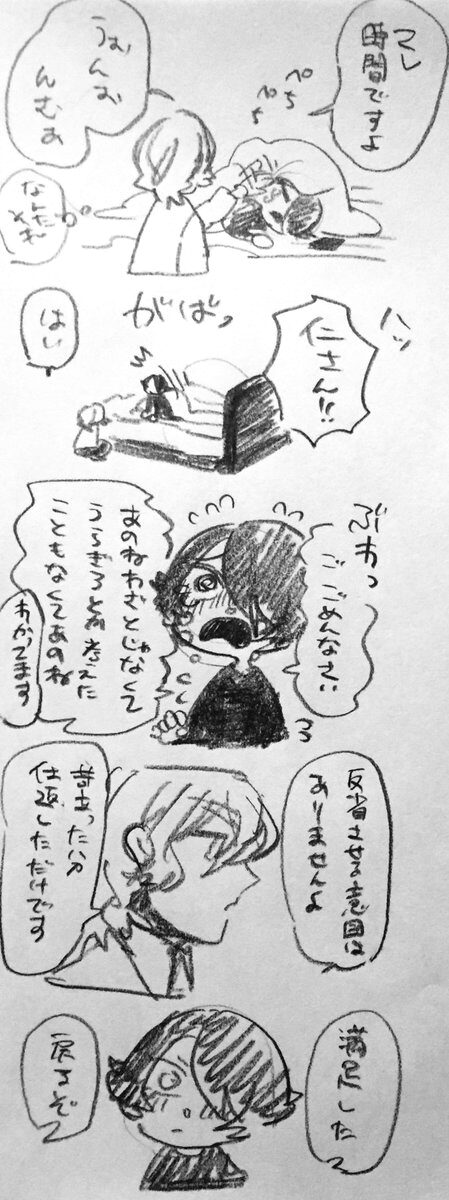 マレ
時間ですよ
ぺち
ぺち
うおんお
んむぁ
なんだ
それ
ハッ
仁さん!!
がばっ
はい
ぶわっ
ご ごめんなさい
あのねわざとじゃなくて
うらぎろとか考えた
こともなくてあのね
わかてます
反省させる意図は
ありませんよ
苛立った分
仕返ししただけです
満足した
戻るぞ